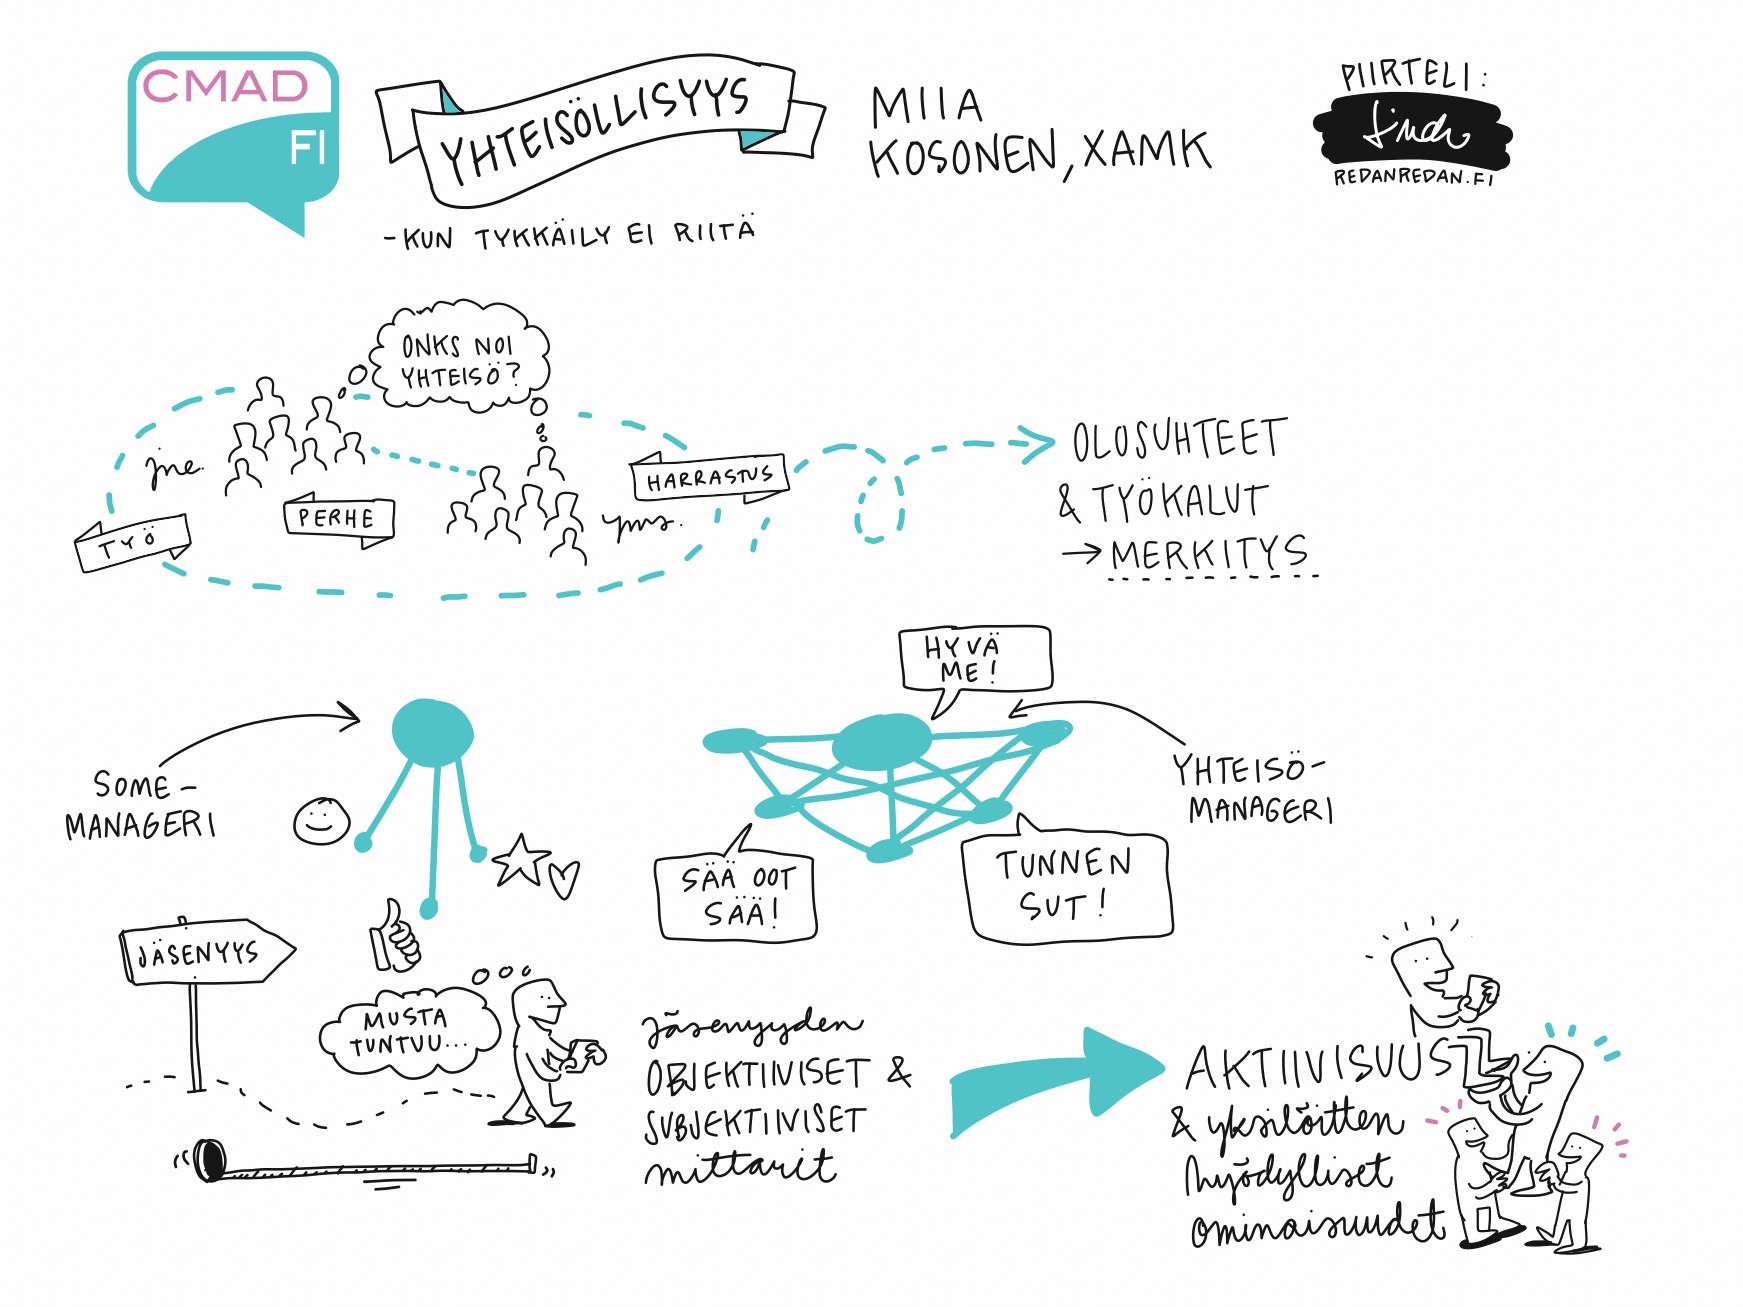 CMAD
FI
YHTEISÖLLISYYS
-KUN TYKKÄILY EI RIITÄ
MIIA
KOSONEN, XAMK
PIIRTELI:
REDANREDAN.FI
ONKS NOI
YHTEISÖ?
jne.
TYÖ
PERHE
yms.
HARRASTUS
OLOSUHTEET
& TYÖKALUT
→ MERKITYS
SOME-
MANAGERI
HYVÄ
ME!
YHTEISÖ-
MANAGERI
SÄÄ OOT
SÄÄ!
TUNNEN
SUT!
JÄSENYYS
MUSTA
TUNTUU...
jäsenyyden
OBJEKTIIVISET &
SUBJEKTIIVISET
mittarit
AKTIIVISUUS
& yksilöitten
hyödylliset
ominaisuudet